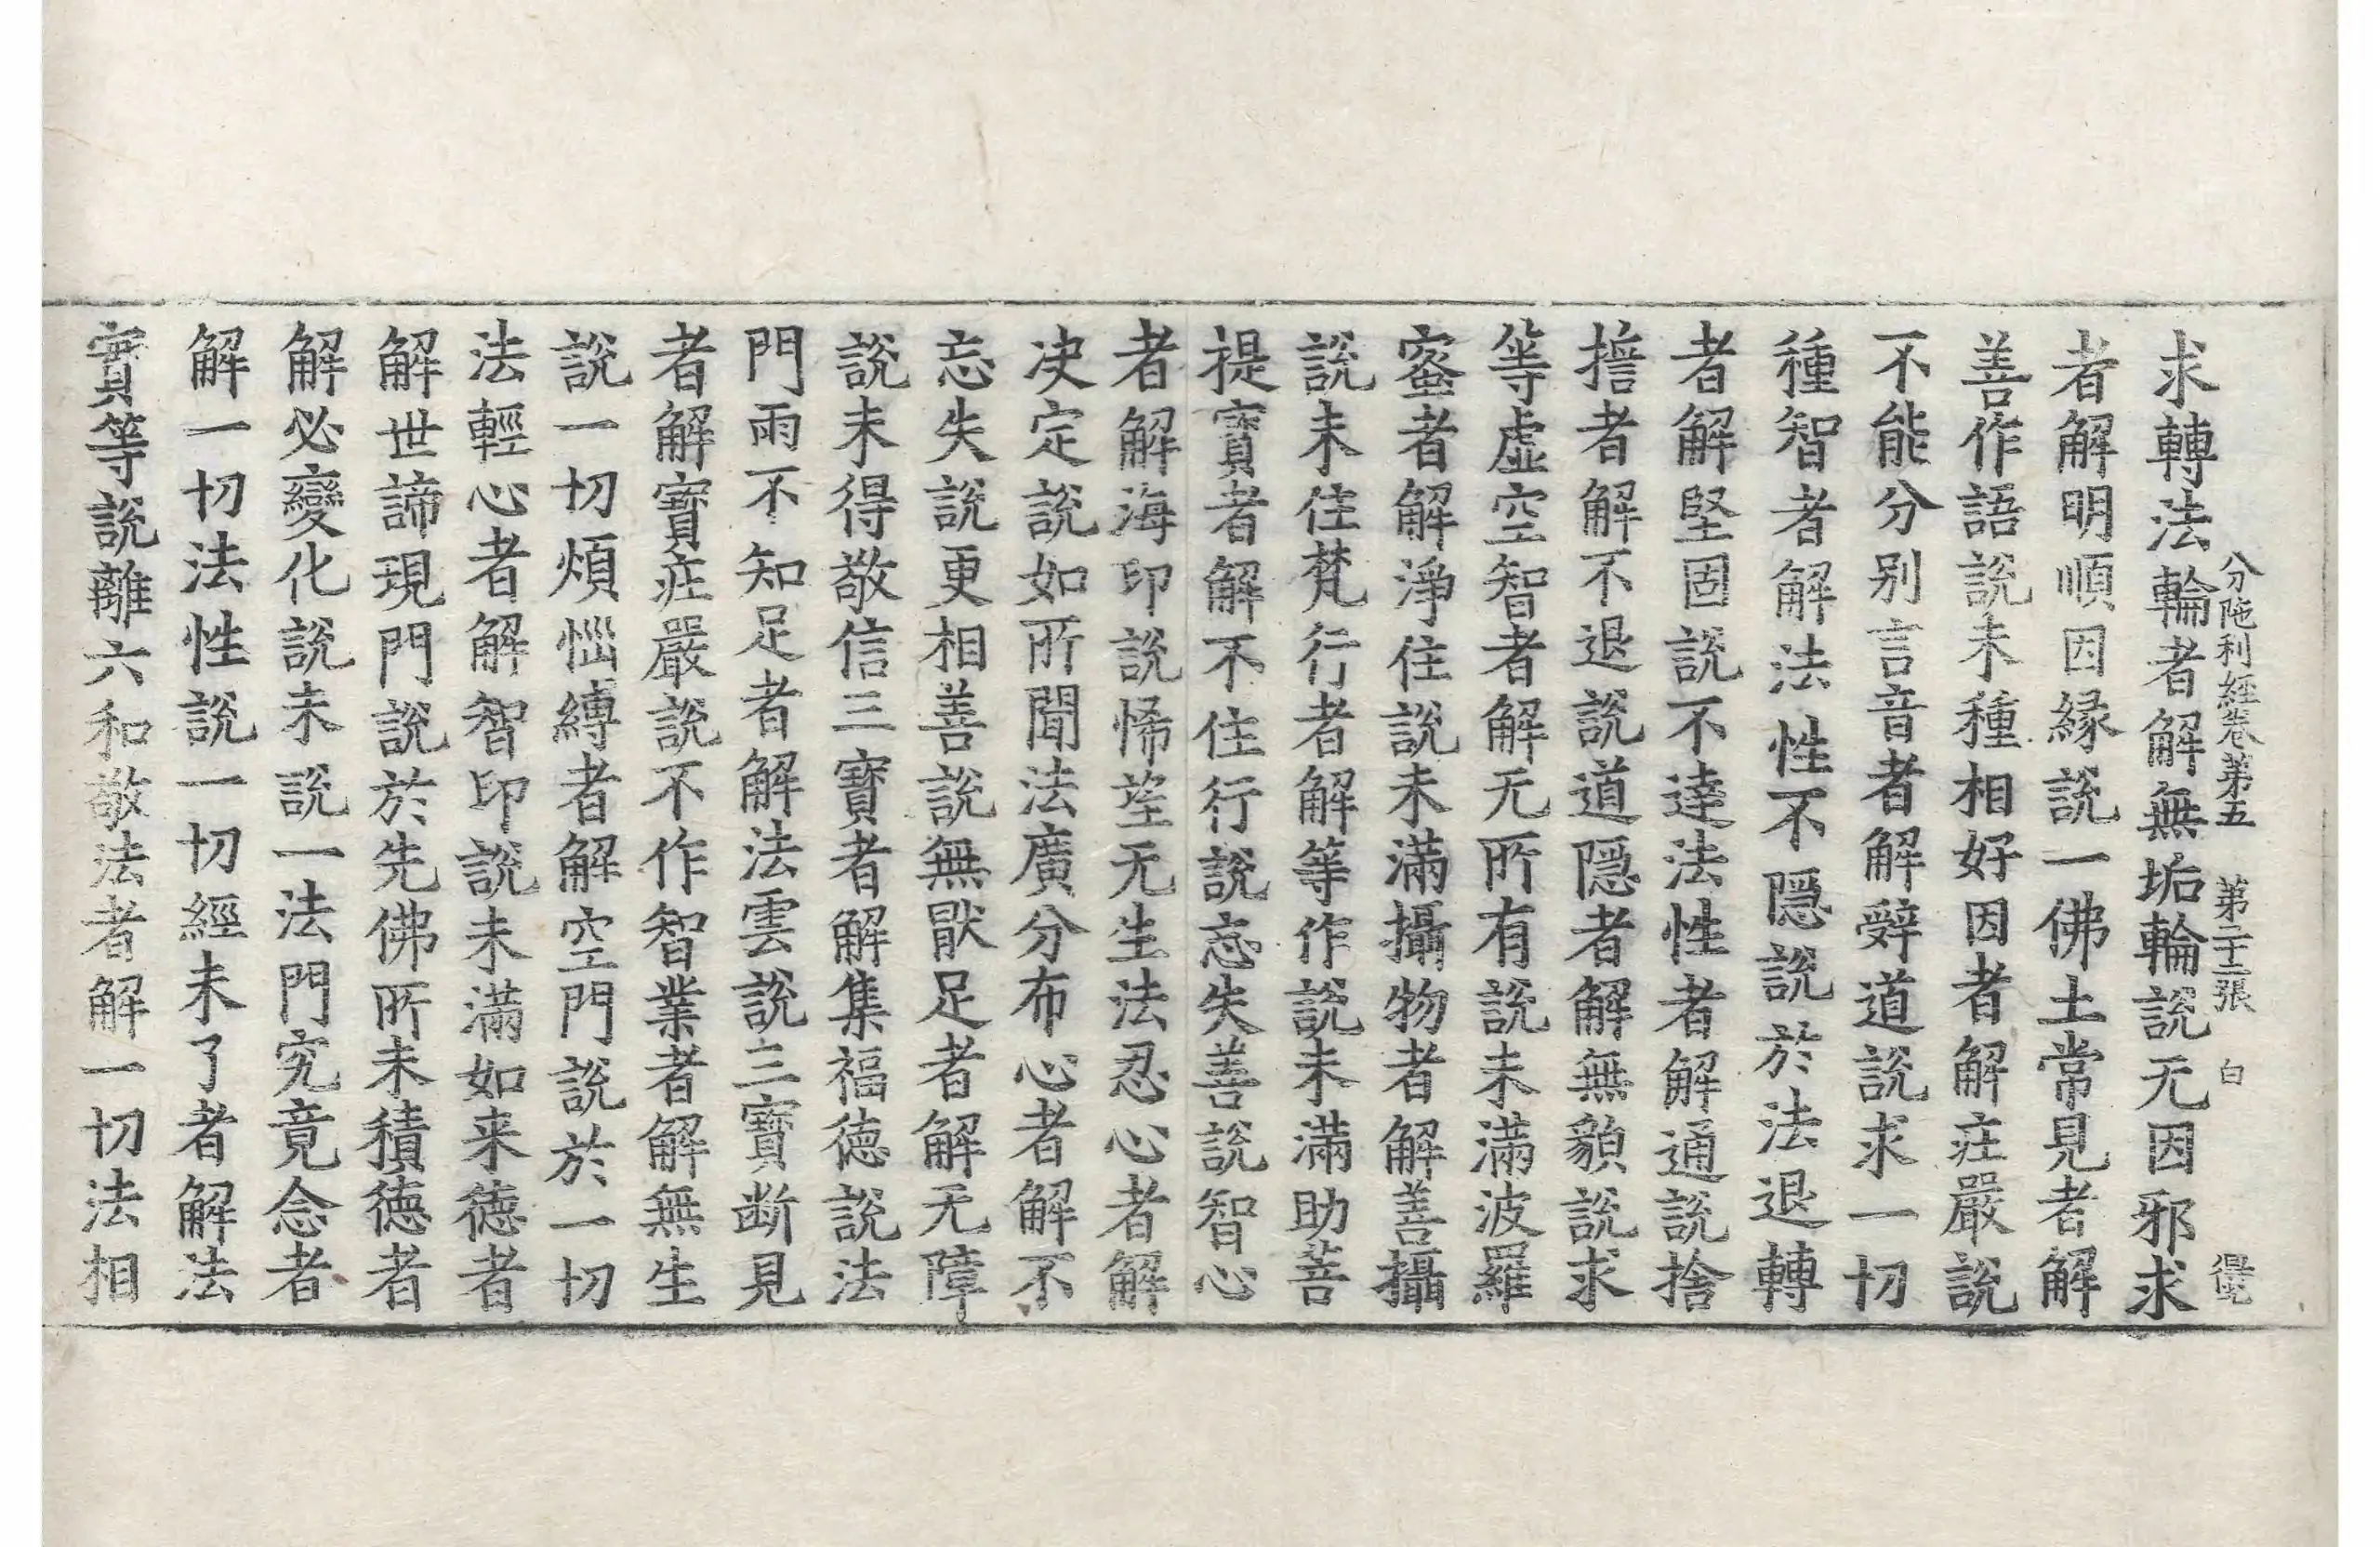 分陁利經卷第五　第二十二張　白
求轉法輪者解無垢輪說无因邪求
者解明順因緣說一佛土常見者解
善作語說未種相好因者解疘嚴說
不能分别言音者解辤道說求一切
種智者解法性不隱說於法退轉
者解堅固說不達法性者解通說捨
擔者解不退說道隱者解無貌說求
等虛空智者解无所有說未滿波羅
蜜者解淨住說未滿攝物者解善攝
說未住梵行者解等作說未滿助菩
提寶者解不住行說忘失善說智心
者解海印說悕望无生法忍心者解
决定說如所聞法廣分布心者解不
忘失說更相善說無猒足者解无障
說未得敬信三寶者解集福德說法
門雨不知足者解法雲說三寶断見
者解寶疘嚴說不作智業者解無生
說一切煩惱縛者解空門說於一切
法輕心者解智印說未滿如来德者
解世諦現門說於先佛所未積德者
解必變化說未說一法門究竟念者
解一切法性說一切經未了者解法
實等說離六和敬法者解一切法相